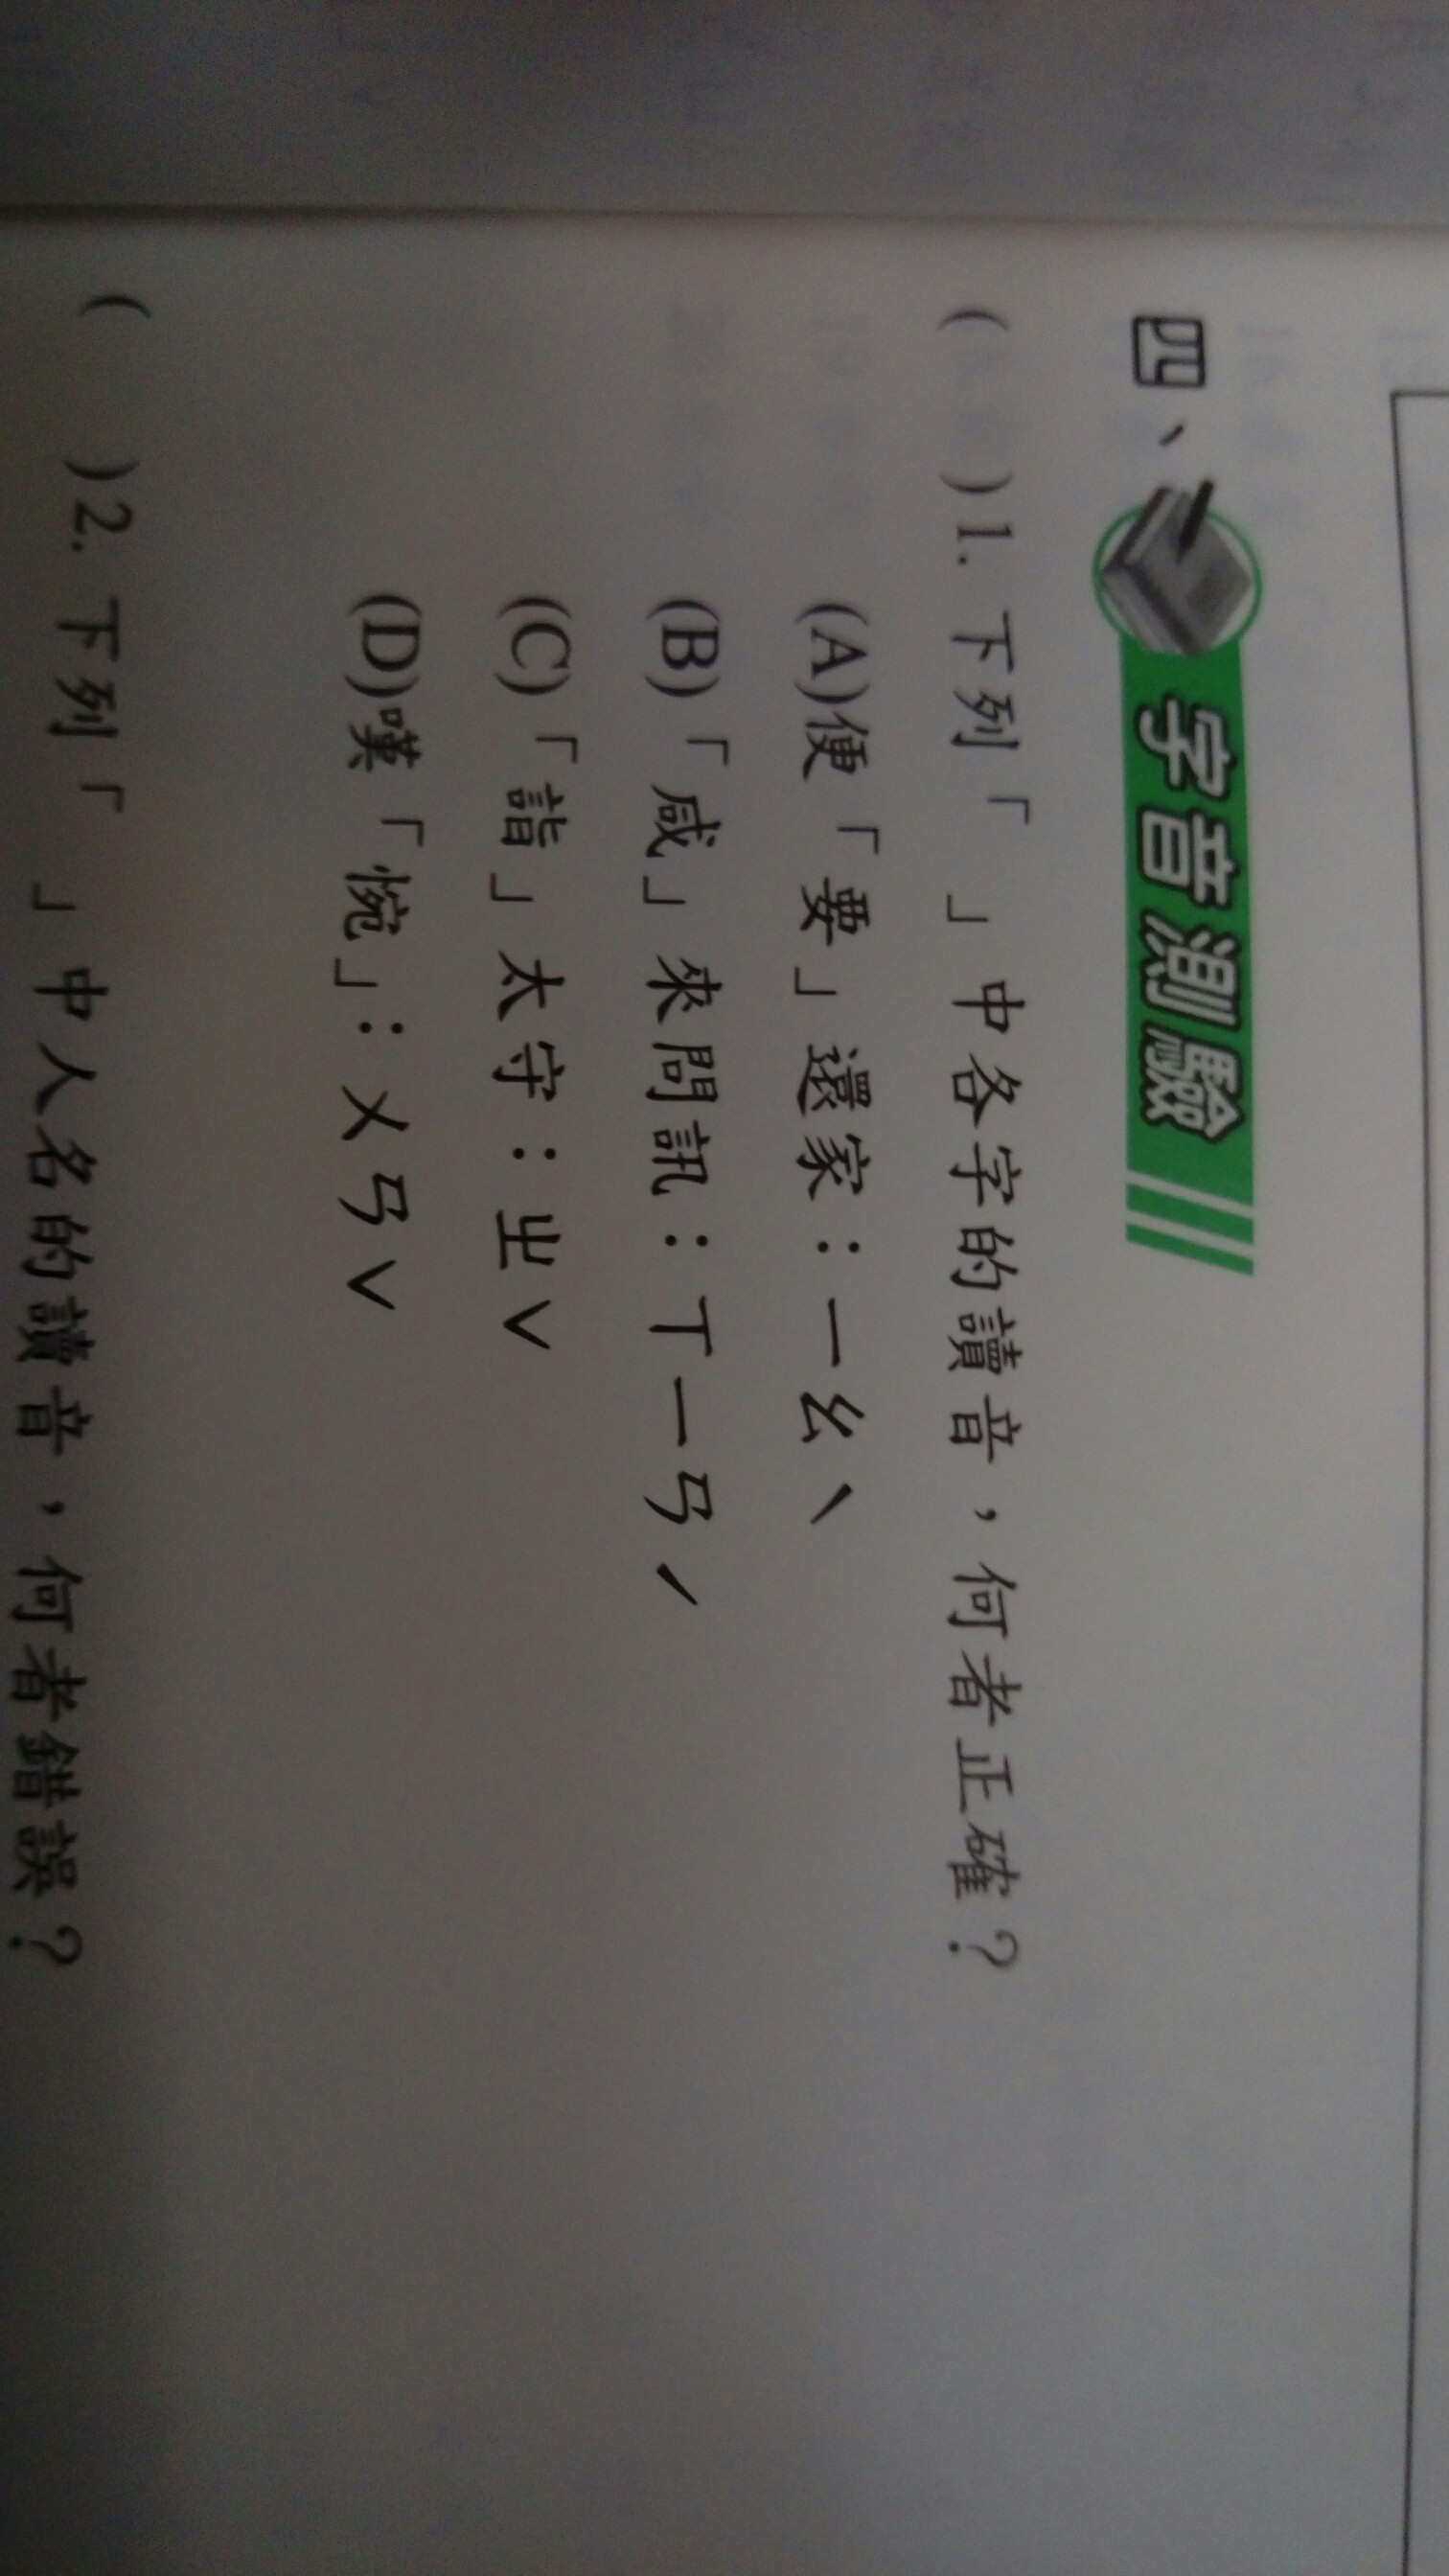 四、字音測驗
( )1. 下列「 」中各字的讀音，何者正確？
(A)便「要」還家：ㄧㄠˋ
(B)「咸」來問訊：ㄒㄧㄢˊ
(C)「詣」太守：ㄓˇ
(D)嘆「惋」：ㄨㄢˇ
( )2. 下列「 」中人名的讀音，何者錯誤？